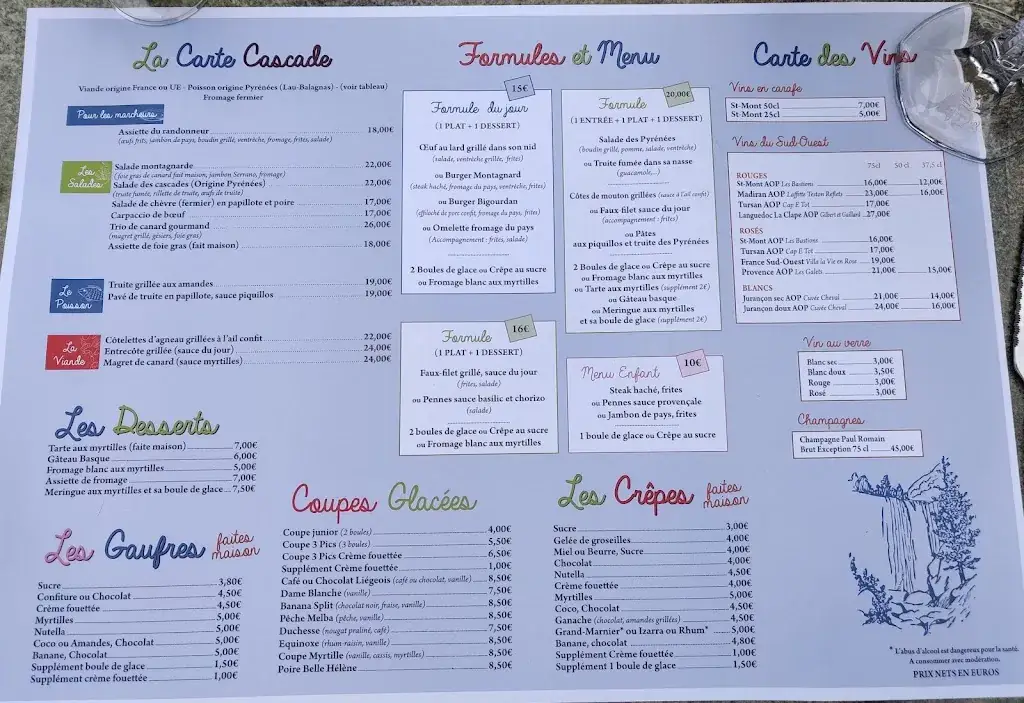 La Carte Cascade
Viande origine France ou UE - Poisson origine Pyrénées (Lau-Balagnas) - (voir tableau)
Fromage fermier
Pour les marcheurs
Assiette du randonneur 18,00€
(œufs frits, jambon de pays, boudin grillé, ventrèche, fromage, frites, salade)
Les Salades
Salade montagnarde 22,00€
(foie gras de canard fait maison, jambon Serrano, fromage)
Salade des cascades (Origine Pyrénées) 22,00€
(truite fumée, rillette de truite, œufs de truite)
Salade de chèvre (fermier) en papillote et poire 17,00€
Carpaccio de bœuf 17,00€
Trio de canard gourmand 26,00€
(magret grillé, gésiers, foie gras)
Assiette de foie gras (fait maison) 18,00€
Le Poisson
Truite grillée aux amandes 19,00€
Pavé de truite en papillote, sauce piquillos 19,00€
La Viande
Côtelettes d'agneau grillées à l'ail confit 22,00€
Entrecôte grillée (sauce du jour) 24,00€
Magret de canard (sauce myrtilles) 24,00€
Les Desserts
Tarte aux myrtilles (faite maison) 7,00€
Gâteau Basque 6,00€
Fromage blanc aux myrtilles 5,00€
Assiette de fromage 7,00€
Meringue aux myrtilles et sa boule de glace 7,50€
Les Gaufres faites maison
Sucre 3,80€
Confiture ou Chocolat 4,50€
Crème fouettée 4,50€
Myrtilles 5,00€
Nutella 5,00€
Coco ou Amandes, Chocolat 5,00€
Banane, Chocolat 5,00€
Supplément boule de glace 1,50€
Supplément crème fouettée 1,00€
Formules et Menu
15€
Formule du jour
(1 PLAT + 1 DESSERT)
Œuf au lard grillé dans son nid
(salade, ventrèche grillée, frites)
ou Burger Montagnard
(steak haché, fromage du pays, ventrèche, frites)
ou Burger Bigourdan
(effiloché de porc confit, fromage du pays, frites)
ou Omelette fromage du pays
(Accompagnement : frites, salade)
2 Boules de glace ou Crêpe au sucre
ou Fromage blanc aux myrtilles
16€
Formule
(1 PLAT + 1 DESSERT)
Faux-filet grillé, sauce du jour
(frites, salade)
ou Pennes sauce basilic et chorizo
(salade)
2 boules de glace ou Crêpe au sucre
ou Fromage blanc aux myrtilles
20,00€
Formule
(1 ENTRÉE + 1 PLAT + 1 DESSERT)
Salade des Pyrénées
(boudin grillé, pomme, salade, ventrèche)
ou Truite fumée dans sa nasse
(guacamole,...)
Côtes de mouton grillées (sauce à l'ail confit)
ou Faux-filet sauce du jour
(accompagnement : frites)
ou Pâtes
aux piquillos et truite des Pyrénées
2 Boules de glace ou Crêpe au sucre
ou Fromage blanc aux myrtilles
ou Tarte aux myrtilles (supplément 2€)
ou Gâteau basque
ou Meringue aux myrtilles
et sa boule de glace (supplément 2€)
10€
Menu Enfant
Steak haché, frites
ou Pennes sauce provençale
ou Jambon de pays, frites
1 boule de glace ou Crêpe au sucre
Coupes Glacées
Coupe junior (2 boules) 4,00€
Coupe 3 Pics (3 boules) 5,50€
Coupe 3 Pics Crème fouettée 6,50€
Supplément Crème fouettée 1,00€
Café ou Chocolat Liégeois (café ou chocolat, vanille) 8,50€
Dame Blanche (vanille) 7,50€
Banana Split (chocolat noir, fraise, vanille) 8,50€
Pêche Melba (pêche, vanille) 8,50€
Duchesse (nougat praliné, café) 7,50€
Equinoxe (rhum-raisin, vanille) 8,50€
Coupe Myrtille (vanille, cassis, myrtilles) 8,50€
Poire Belle Hélène 8,50€
Les Crêpes faites maison
Sucre 3,00€
Gelée de groseilles 4,00€
Miel ou Beurre, Sucre 4,00€
Chocolat 4,00€
Nutella 4,50€
Crème fouettée 4,00€
Myrtilles 5,00€
Coco, Chocolat 4,50€
Ganache (chocolat, amandes grillées) 4,50€
Grand-Marnier* ou Izarra ou Rhum* 5,00€
Banane, chocolat 4,80€
Supplément Crème fouettée 1,00€
Supplément 1 boule de glace 1,50€
Carte des Vins
Vins en carafe
St-Mont 50cl 7,00€
St-Mont 25cl 5,00€
Vins du Sud-Ouest
75cl 50 cl 37,5 cl
ROUGES
St-Mont AOP Les Bastions 16,00€ 12,00€
Madiran AOP Laffitte Teston Reflets 23,00€ 16,00€
Tursan AOP Cap E Tot 17,00€
Languedoc La Clape AOP Gilbert et Gaillard 27,00€
ROSÉS
St-Mont AOP Les Bastions 16,00€
Tursan AOP Cap E Tot 17,00€
France Sud-Ouest Villa la Vie en Rose 19,00€
Provence AOP Les Galets 21,00€ 15,00€
BLANCS
Jurançon sec AOP Cuvée Cheval 21,00€ 14,00€
Jurançon doux AOP Cuvée Cheval 24,00€ 16,00€
Vin au verre
Blanc sec 3,00€
Blanc doux 3,50€
Rouge 3,00€
Rosé 3,00€
Champagnes
Champagne Paul Romain
Brut Exception 75 cl 45,00€
* L'abus d'alcool est dangereux pour la santé.
A consommer avec modération.
PRIX NETS EN EUROS